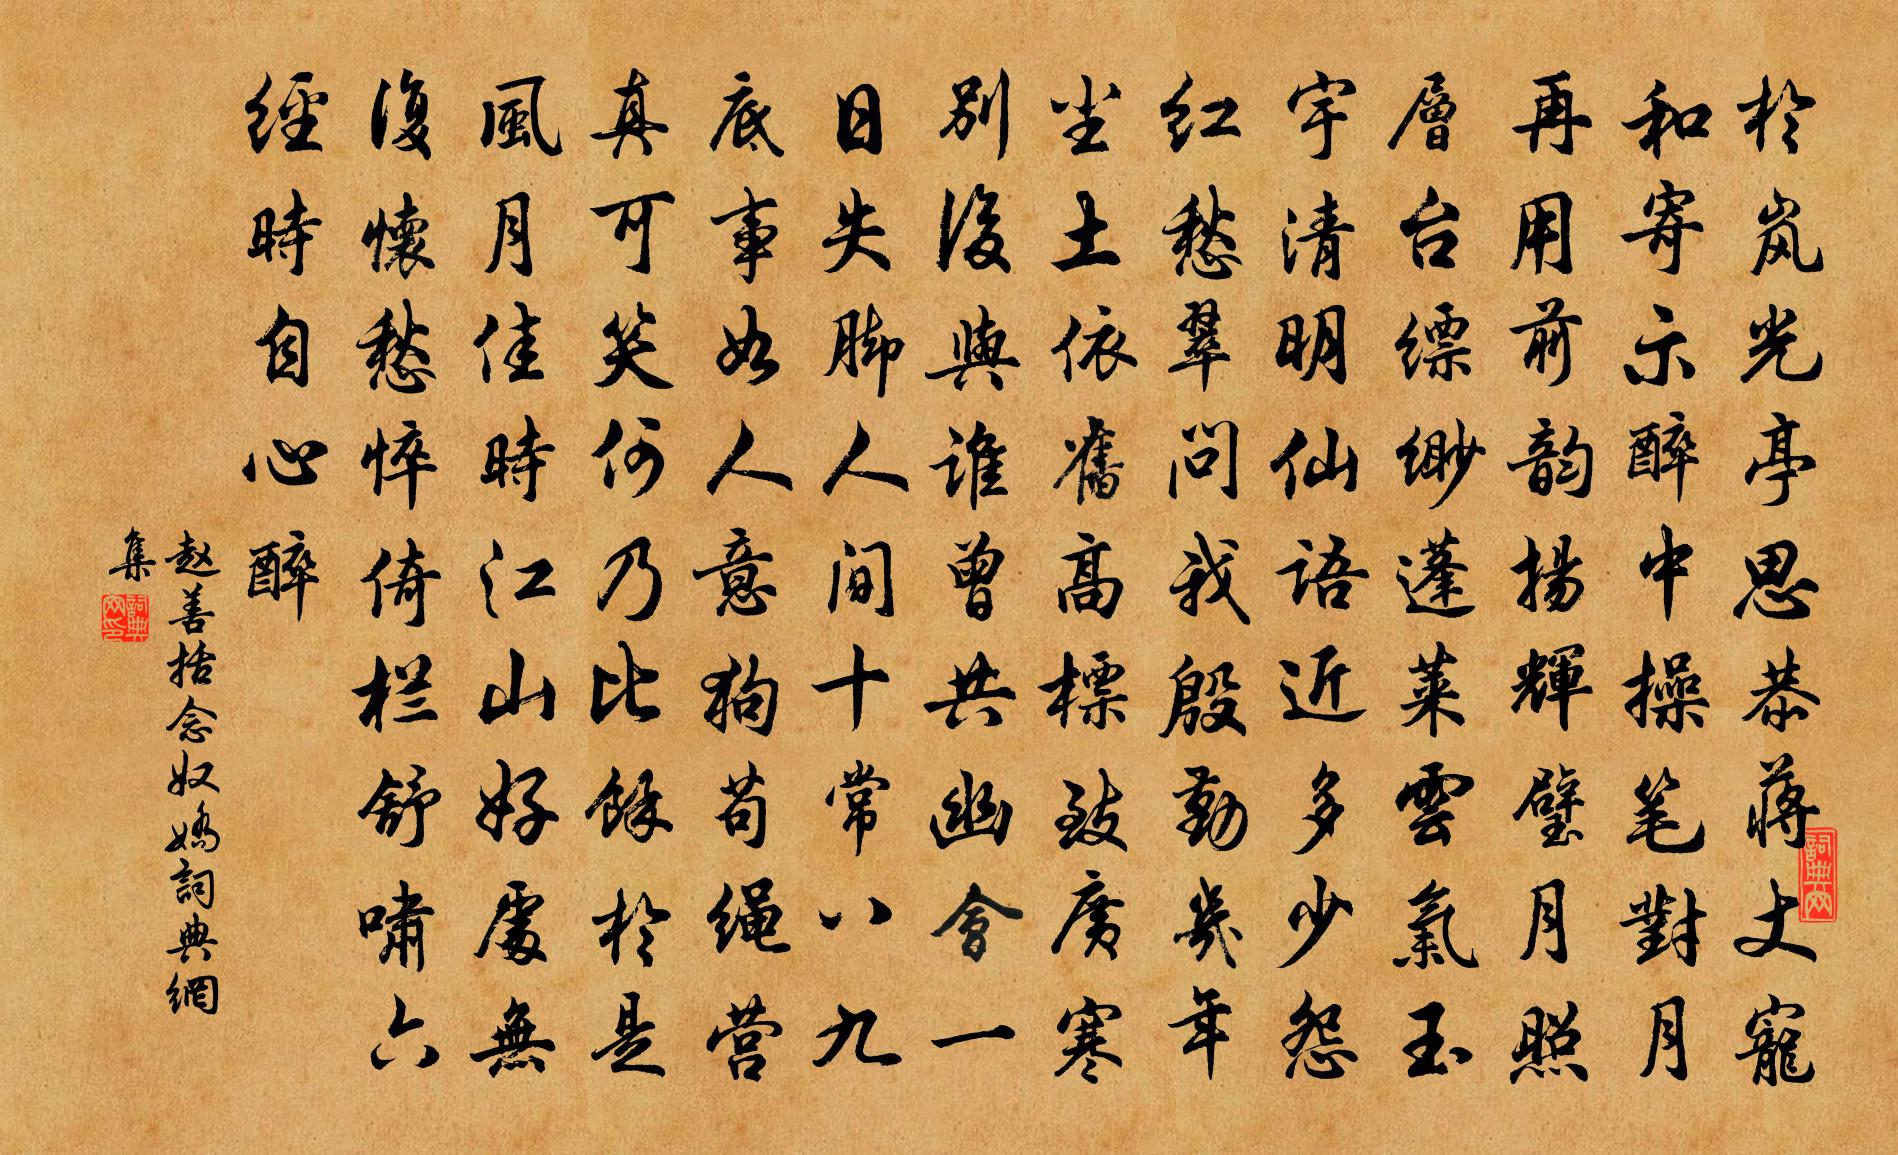 於岚光亭思恭蒋丈寵
和寄示醉中操笔對月
再用前韵揚輝璧月照
層台缥缈蓬莱雲氣玉
宇清明仙語近多少怨
红愁翠問我殷勤幾年
坐土依舊高標致廣寒
别後與誰曾共幽會一
日失脚人间十常八九
底事如人意狗苟绳营
真可笑何乃比餘於是
風月佳時江山好處無
復懷愁悴倚栏舒啸六
經時自心醉
赵善括念奴嬌詞典網
集
詞典网印
詞典网